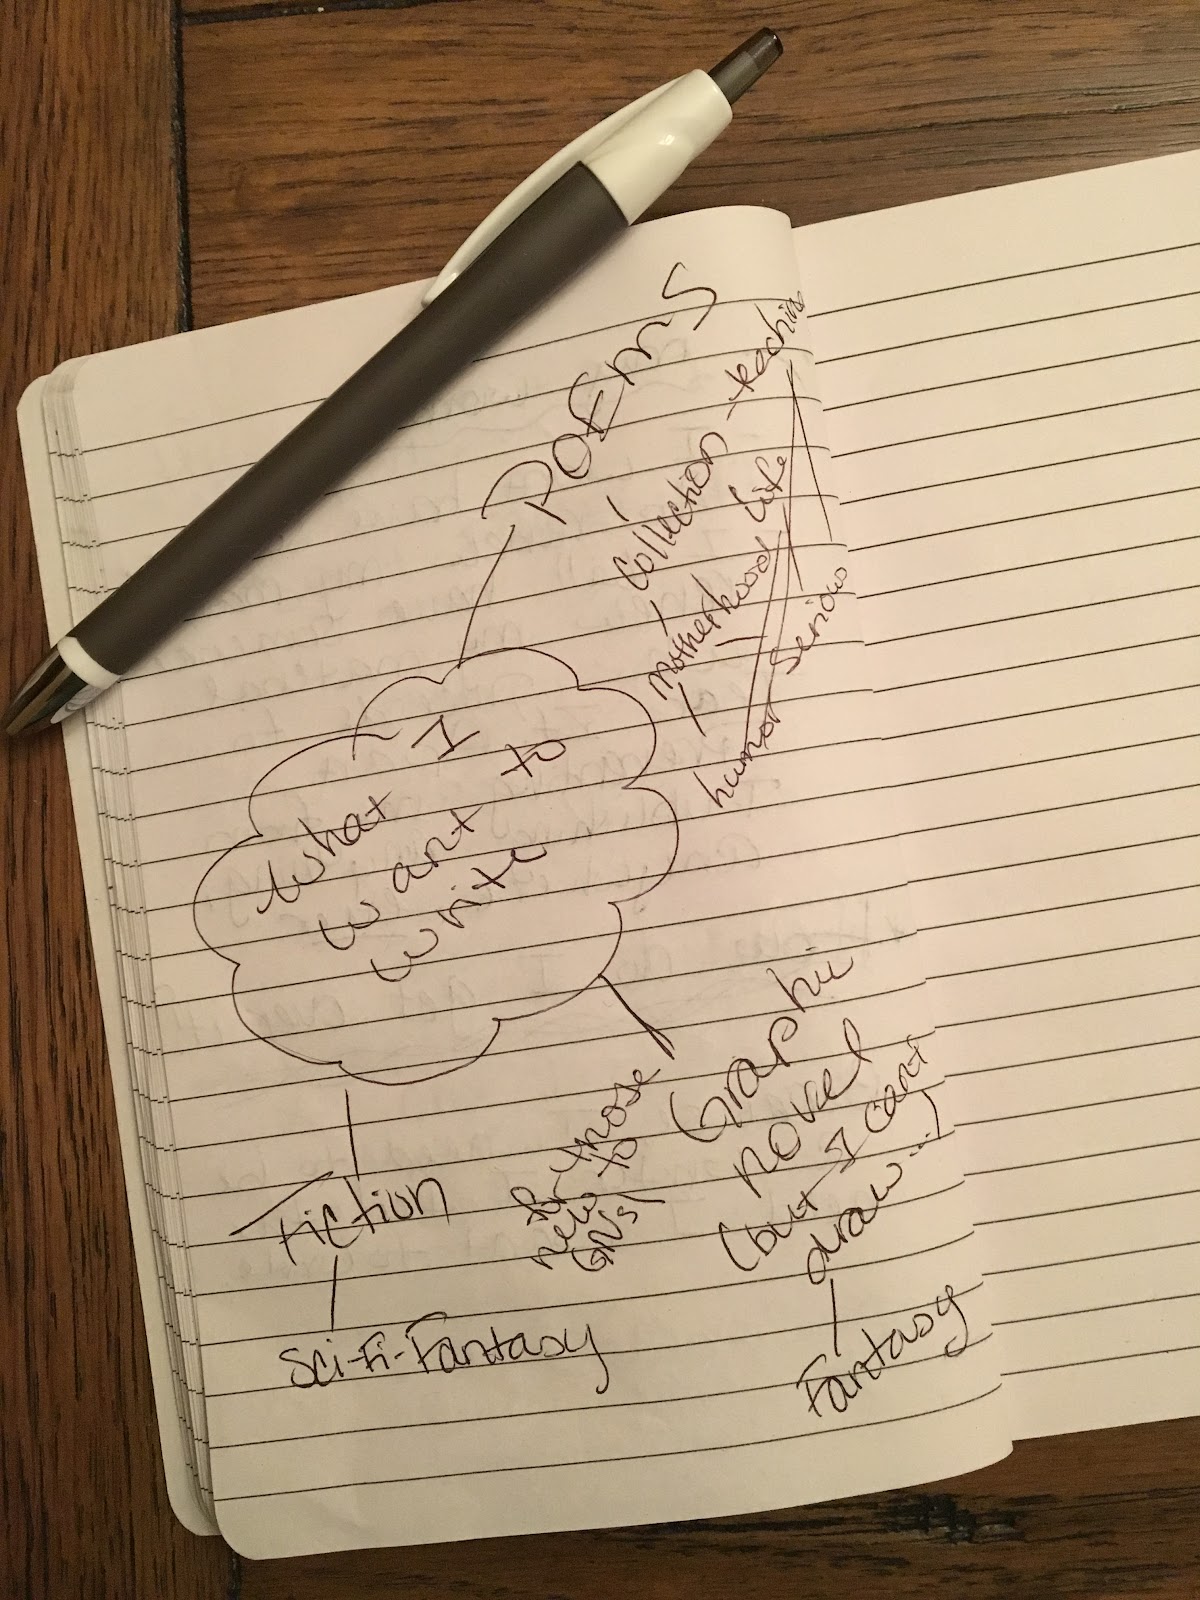 POEMS
Collection - teaching
motherhood life
humor serious
What I
want to
write
Graphic
novel
(but I cant
draw...)
Fantasy
for those
new to
GNs!
Fiction
Sci-Fi-Fantasy